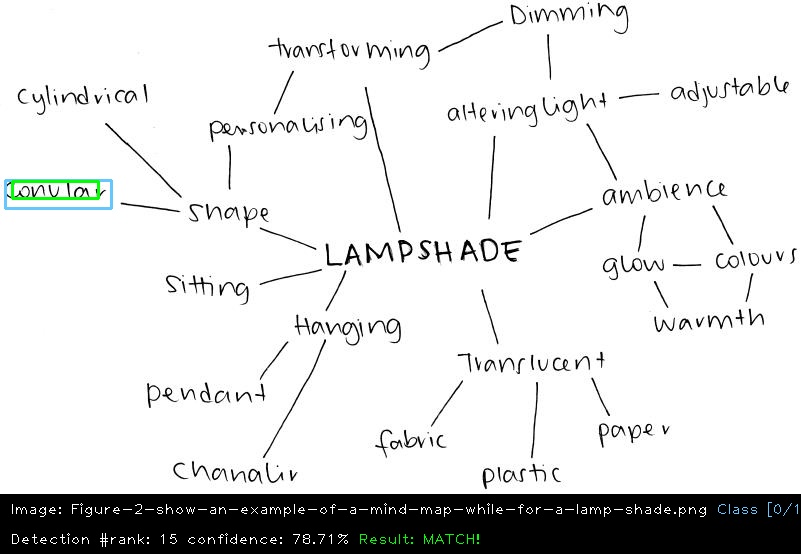 Dimming
transforming
Cylindrical
alteringlight
adjustable
personalising
Conular
shape
ambience
LAMPSHADE
glow
colours
Sitting
Hanging
Warmth
Translucent
pendant
fabric
paper
Chanalir
plastic
Image: Figure-2-show-an-example-of-a-mind-map-while-for-a-lamp-shade.png Class [0/1
Detection #rank: 15 confidence: 78.71% Result: MATCH!